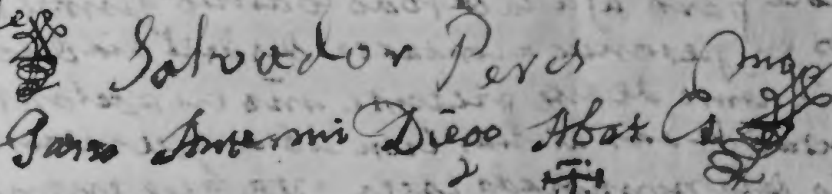 Salvador Peres
Paso Ante mi Diego Abat. Es